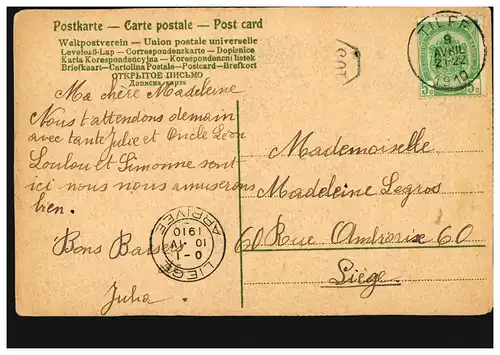 Postkarte - Carte postale - Post card
Weltpostverein - Union postale universelle
Levelező-Lap - Correspondenzkarte - Dopisnice
Karta Korespondencyjna - Korespondencni listek
Briefkaart - Cartolina Postale - Postcard - Brefkort
ОТКРЫТОЕ ПИСЬМО
Дописна карта
Ma chère Madeleine
Nous t'attendons demain
avec tante Julie et Oncle Léon
Loulou et Simonne sont
ici nous nous amuserons
bien.
Bons Baisers
Julia.
TILFF
9
AVRIL
21-22
1910
5c 5c
Mademoiselle
Madeleine Legros
60 Rue Ambiorix 60
Liège
LIEGE
0-1
10 IV
1910
ARRIVEE